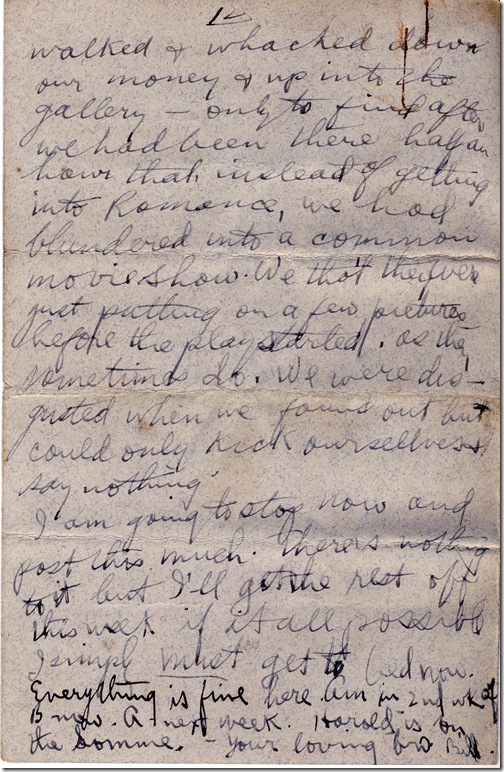 12
walked & whacked down
our money & up into the
gallery – only to find after
we had been there half an
hour that instead of getting
into Romance, we had
blundered into a common
movie show. We tho't they were
just putting on a few pictures
before the play started, as they
sometimes do. We were dis-
gusted when we found out but
could only kick ourselves &
say nothing.
I am going to stop now and
post this much. There's nothing
to it but I'll get the rest off
this week if it all possible
I simply must get to bed now.
Everything is fine here Am in 2nd wk of
B now. A next week. Harold is on
the Somme. – Your loving bro Bill.